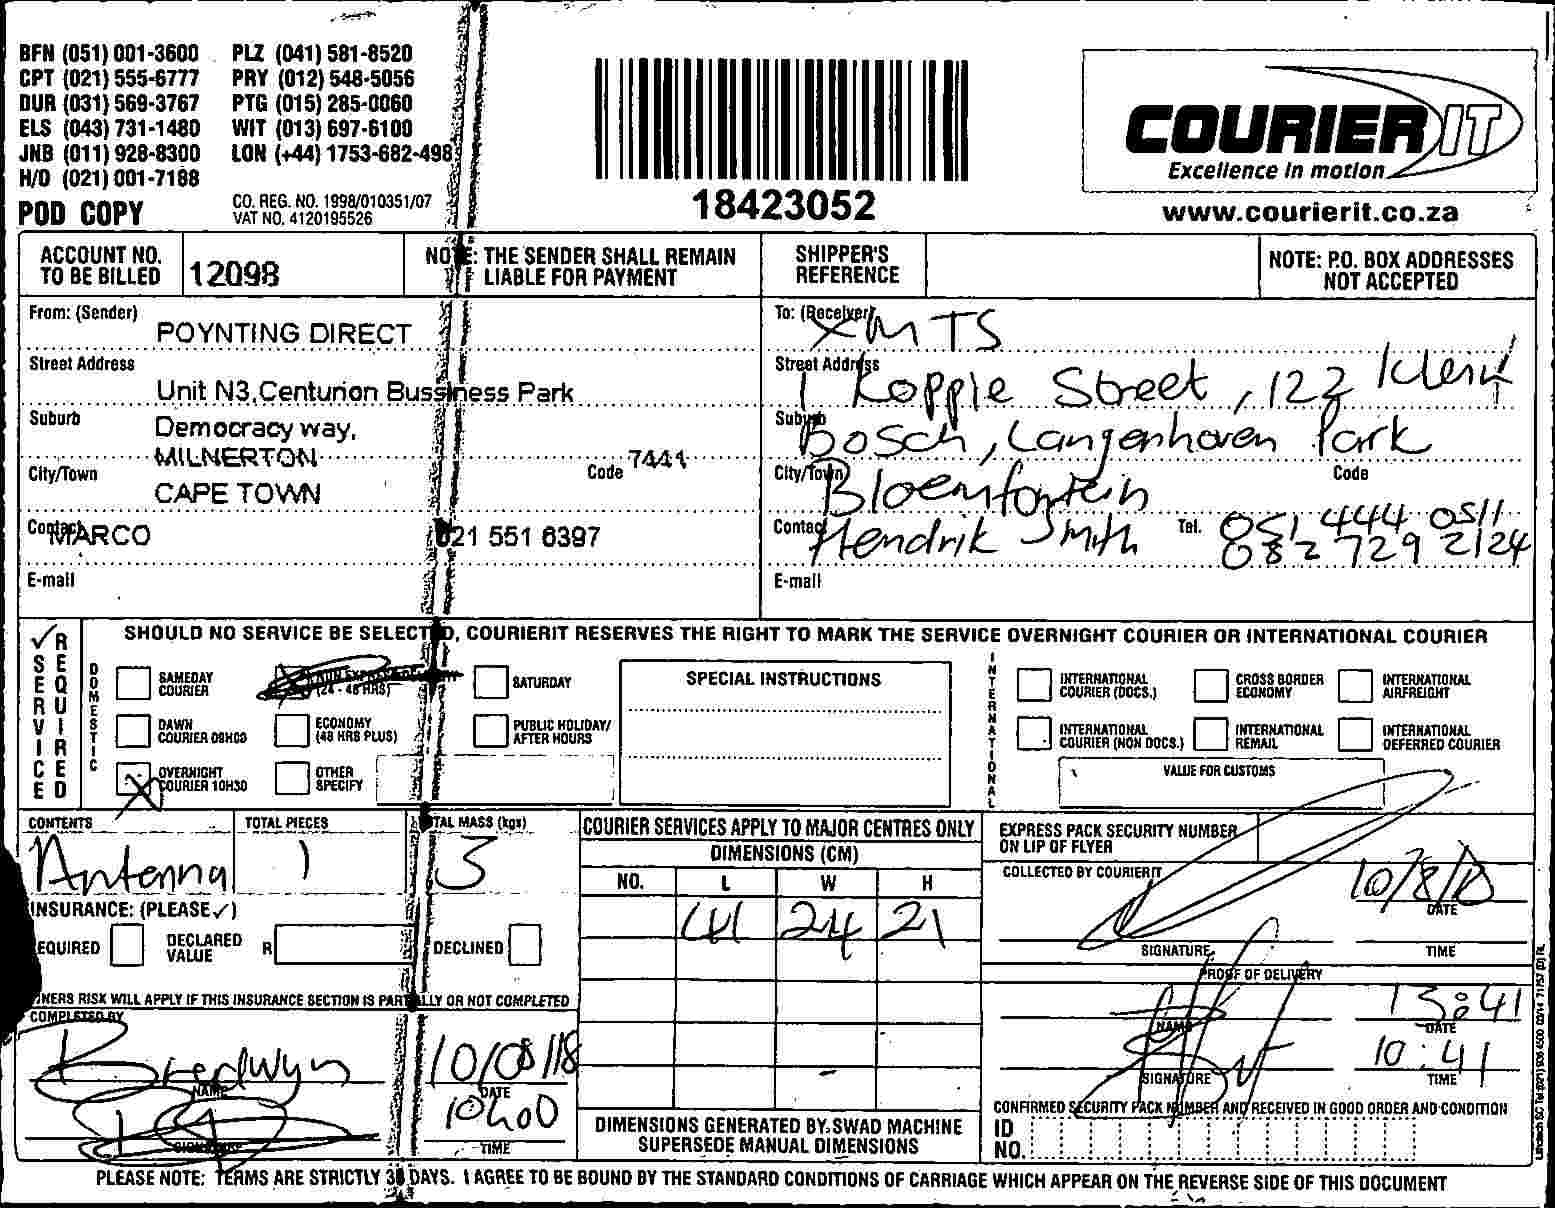 BFN (051) 001-3600 PLZ (041) 581-8520
CPT (021) 555-6777 PRY (012) 548-5056
DUR (031) 569-3767 PTG (015) 285-0060
ELS (043) 731-1480 WIT (013) 697-6100
JNB (011) 928-8300 LON (+44) 1753-682-498
H/O (021) 001-7188
POD COPY
CO. REG. NO. 1998/010351/07
VAT NO. 4120195526
18423052
COURIER IT
Excellence in motion
www.courierit.co.za
ACCOUNT NO. TO BE BILLED 12098
NOTE: THE SENDER SHALL REMAIN
LIABLE FOR PAYMENT
SHIPPER'S
REFERENCE
NOTE: P.O. BOX ADDRESSES
NOT ACCEPTED
From: (Sender) POYNTING DIRECT
Street Address Unit N3,Centurion Bussiness Park
Suburb Democracy way,
MILNERTON
City/Town CAPE TOWN Code 7441
Contact MARCO 021 551 6397
E-mail
To: (Receiver) XMTS
Street Address 1 Koppie Street, 122 Klein
Suburb Bosch, Langenhoven Park
City/Town Bloemfontein Code
Contact Hendrik Smith Tel. 051 444 0511
082 729 2124
E-mail
✓ SERVICE REQUIRED
SHOULD NO SERVICE BE SELECTED, COURIERIT RESERVES THE RIGHT TO MARK THE SERVICE OVERNIGHT COURIER OR INTERNATIONAL COURIER
DOMESTIC
SAMEDAY
COURIER
(24 - 48 HRS)
SATURDAY
DAWN
COURIER 08H00
ECONOMY
(48 HRS PLUS)
PUBLIC HOLIDAY/
AFTER HOURS
X OVERNIGHT
COURIER 10H30
OTHER
SPECIFY
SPECIAL INSTRUCTIONS
INTERNATIONAL
INTERNATIONAL
COURIER (DOCS.)
CROSS BORDER
ECONOMY
INTERNATIONAL
AIRFREIGHT
INTERNATIONAL
COURIER (NON DOCS.)
INTERNATIONAL
REMAIL
INTERNATIONAL
DEFERRED COURIER
VALUE FOR CUSTOMS
CONTENTS Antenna
TOTAL PIECES 1
TOTAL MASS (kgs) 3
INSURANCE: (PLEASE ✓)
REQUIRED DECLARED
VALUE R DECLINED
OWNERS RISK WILL APPLY IF THIS INSURANCE SECTION IS PARTIALLY OR NOT COMPLETED
COMPLETED BY
Bredwyn 10/08/18
NAME DATE
10h00
SIGNATURE TIME
COURIER SERVICES APPLY TO MAJOR CENTRES ONLY
DIMENSIONS (CM)
NO. L W H
41 24 21
DIMENSIONS GENERATED BY SWAD MACHINE
SUPERSEDE MANUAL DIMENSIONS
EXPRESS PACK SECURITY NUMBER
ON LIP OF FLYER
COLLECTED BY COURIERIT
10/8/18
DATE
SIGNATURE TIME
PROOF OF DELIVERY
13:41
NAME DATE
10:41
SIGNATURE TIME
CONFIRMED SECURITY PACK NUMBER AND RECEIVED IN GOOD ORDER AND CONDITION
ID
NO.
PLEASE NOTE: TERMS ARE STRICTLY 30 DAYS. I AGREE TO BE BOUND BY THE STANDARD CONDITIONS OF CARRIAGE WHICH APPEAR ON THE REVERSE SIDE OF THIS DOCUMENT